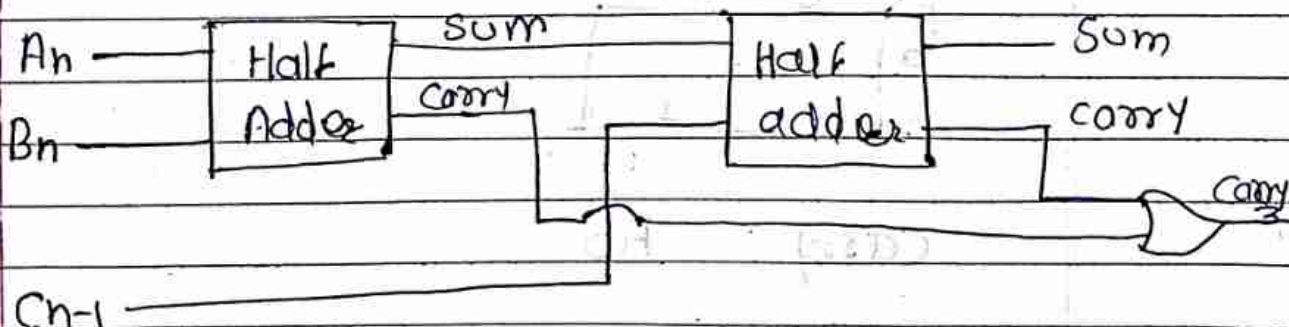 An
Half
Adder
Sum
Carry
Half
adder
Sum
carry
Carry
Bn
Cn-1